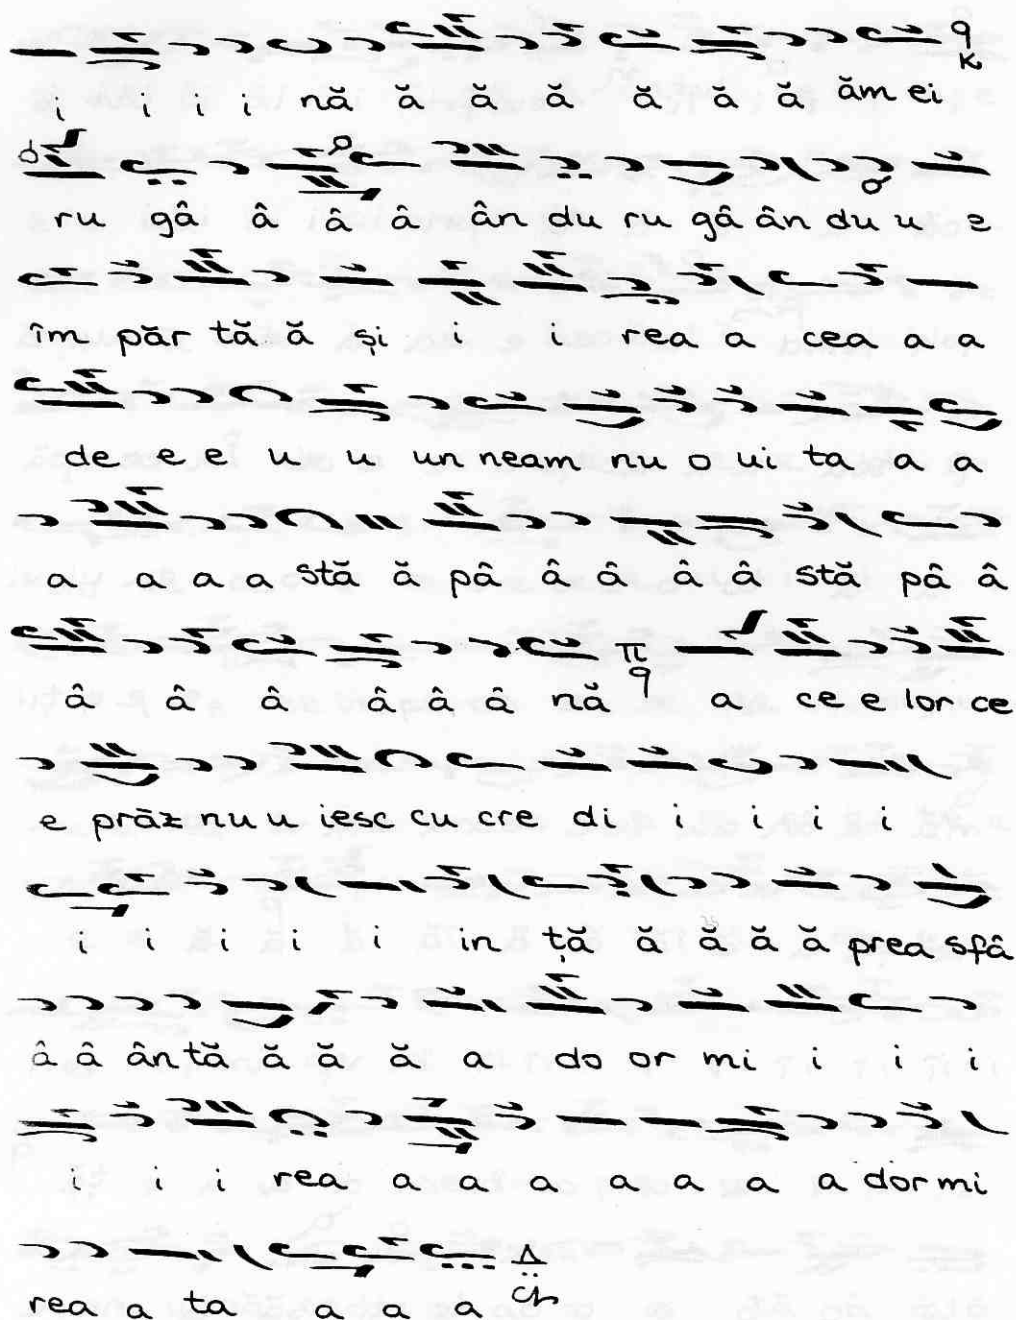 i i i nă ă ă ă ă ă ă ăm ei
ru gâ â â â ân du ru gâ ân du u e
îm păr tă ă și i i rea a cea a a
de e e u u un neam nu o ui ta a a
a a a a stă ă pâ â â â â stă pâ â
â â â â â â nă a ce e lor ce
e prăz nu u iesc cu cre di i i i i
i i i i i in ță ă ă ă ă prea sfâ
â â ân tă ă ă ă a do or mi i i i
i i i rea a a a a a a a dor mi
rea a ta a a a